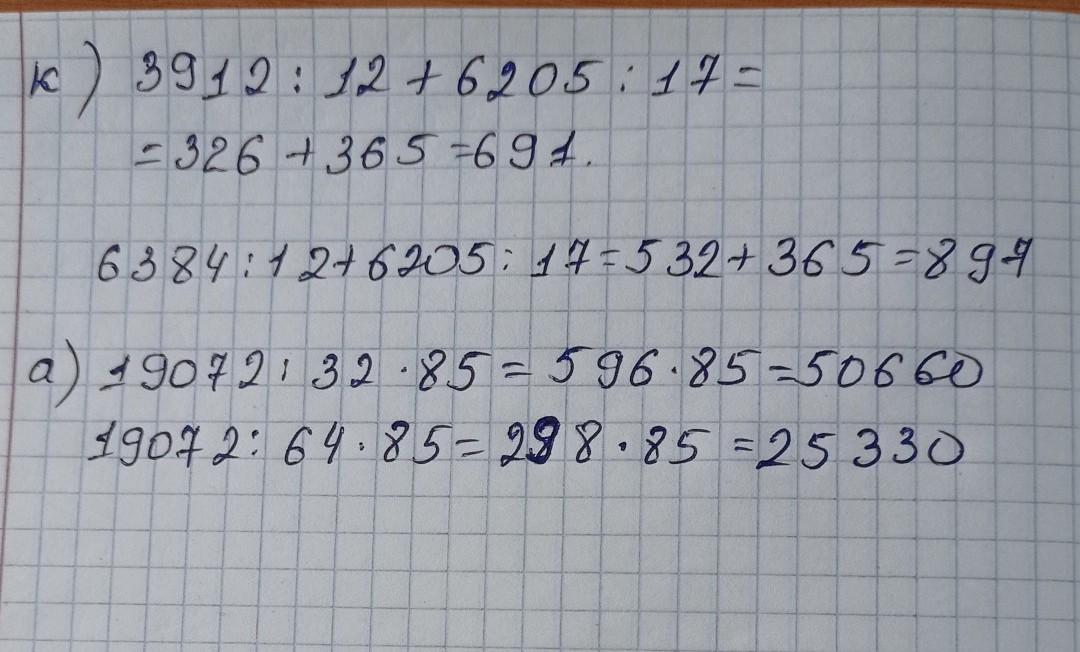 к) 3912 : 12 + 6205 : 17 =
= 326 + 365 = 691.
6384 : 12 + 6205 : 17 = 532 + 365 = 897
а) 19072 : 32 · 85 = 596 · 85 = 50660
19072 : 64 · 85 = 298 · 85 = 25330